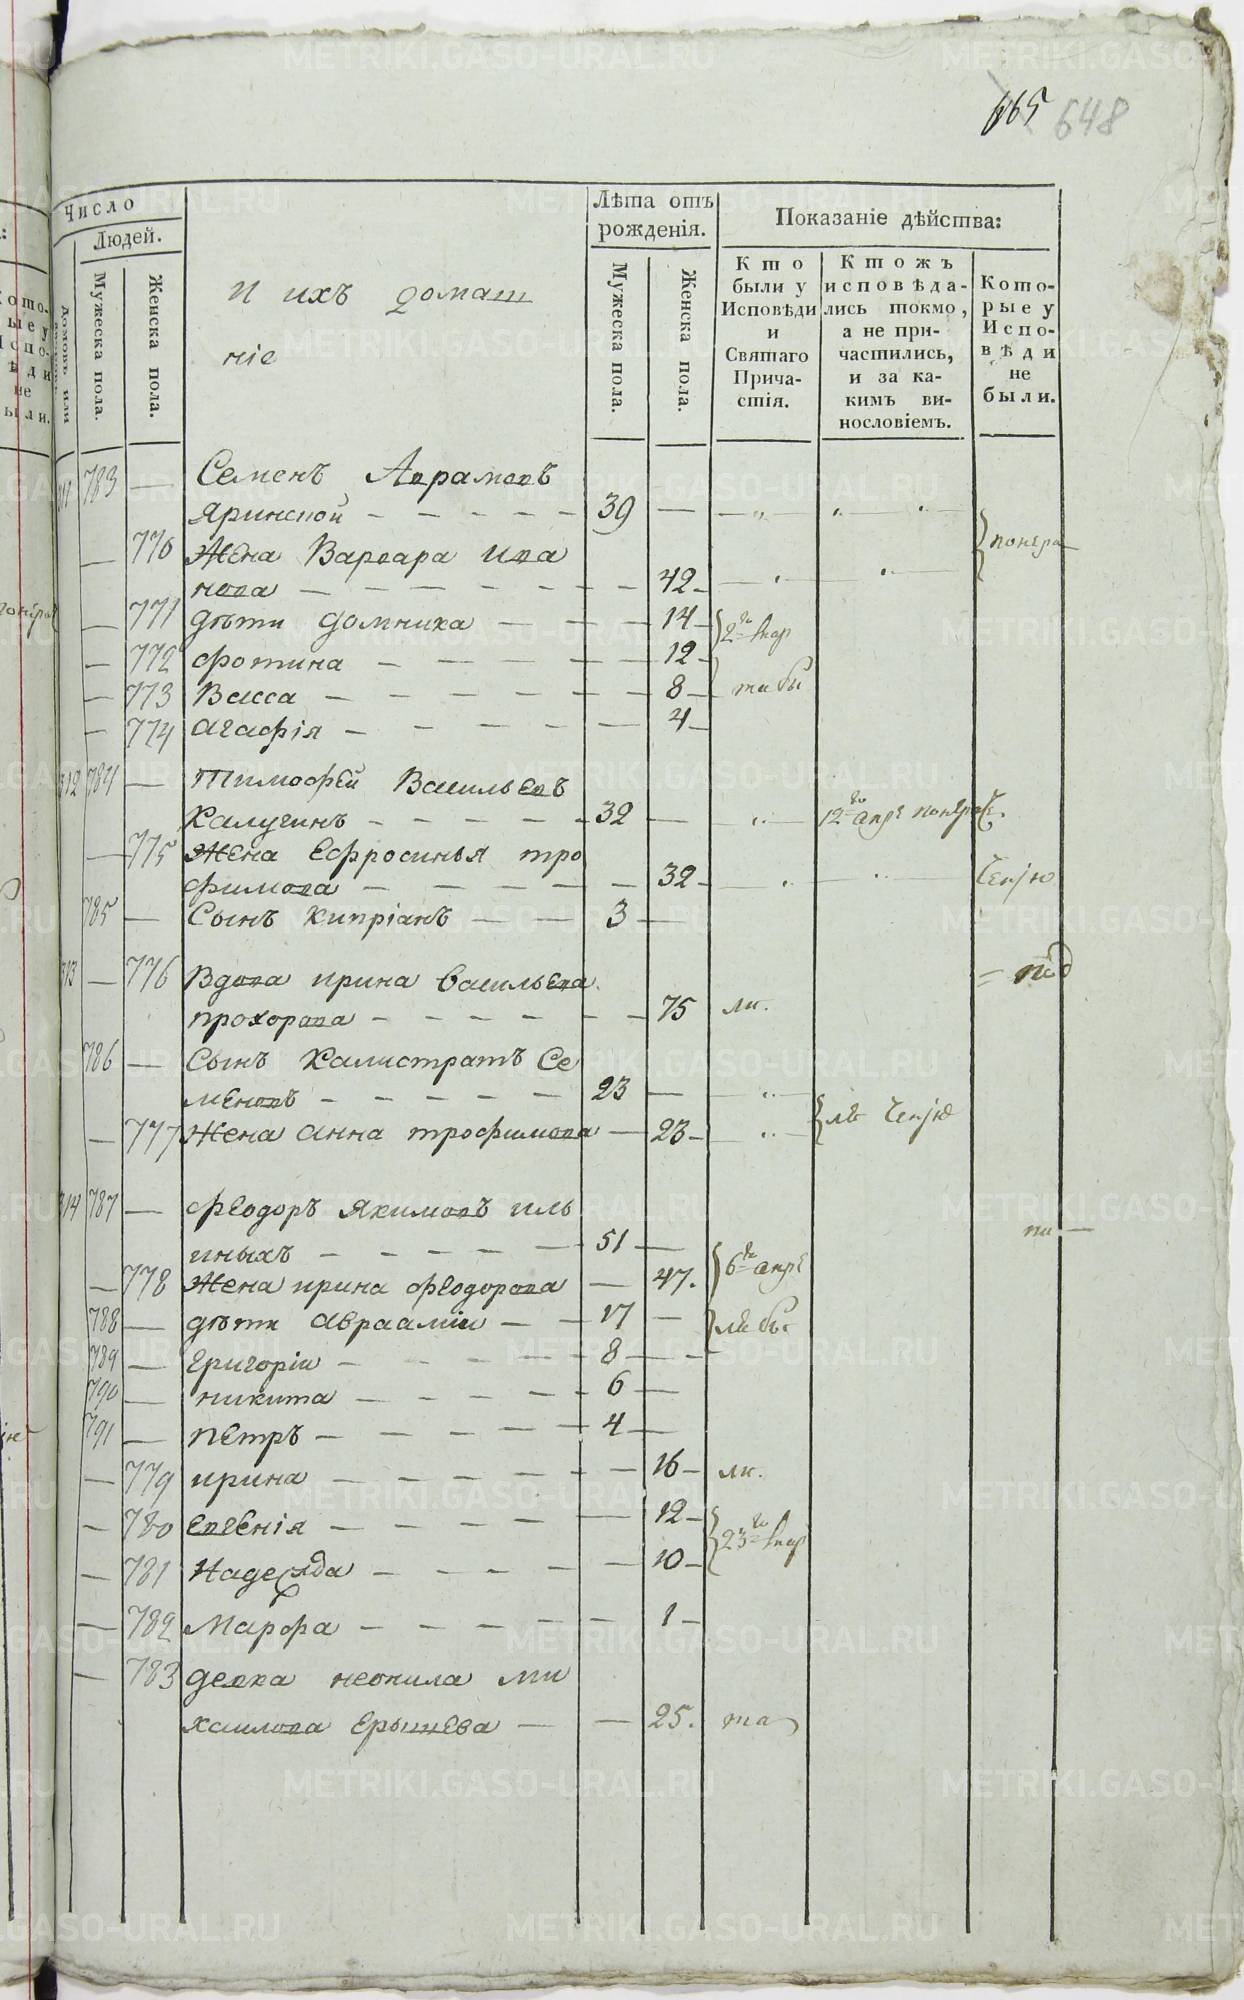 665 648
Число
Людей.
Домовъ или
Мужеска пола.
Женска пола.
И ихъ домаш
ніе
Лѣта отъ
рожденія.
Мужеска пола.
Женска пола.
Показаніе дѣйства:
Кто
были у
Исповѣди
и
Святаго
Прича-
стія.
Ктожъ
исповѣда-
лись токмо,
а не при-
частились,
и за ка-
кимъ ви-
нословіемъ.
Кото-
рые у
Испо-
вѣди
не
были.
311 783 — Семенъ Аврамовъ
Яринской — 39 —
— 770 Жена Варвара Ива
нова — 42
— 771 дѣти Домника — 14
— 772 Фотина — 12
— 773 Васса — 8
— 774 Агафія — 4
312 784 — Тимофей Васильевъ
Калугинъ — 32 — 12го
— 775 Жена Ефросинья Тро
фимова — 32
785 — Сынъ Кипріанъ — 3 —
313 — 776 Вдова Ирина Васильева
Прохорова — 75
786 — Сынъ Калистратъ Се
меновъ — 23 —
— 777 Жена Анна Трофимова — 23
314 787 — Феодоръ Якимовъ Иль
иныхъ — 51 —
— 778 Жена Ирина Феодорова — 47.
788 — дѣти Авраамій — 17 —
789 — Григорій — 8 —
790 — Никита — 6 —
791 — Петръ — 4 —
— 779 Ирина — 16
— 780 Евгенія — 12
— 781 Надежда — 10
— 782 Марфа — 1
— 783 девка Неонила Ми
хаилова Ерышева — 25.
METRIKI.GASO-URAL.RU